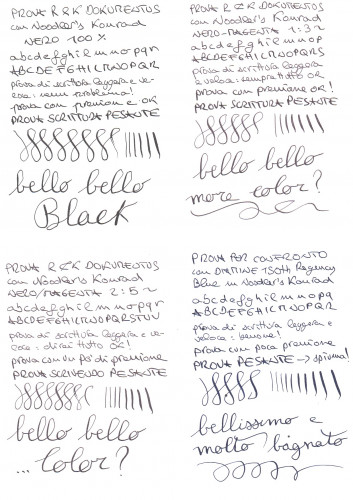 PROVA R & K DOKUMENTUS
con Noodler's Konrad
NERO 100%
abcdefghilmnopqr
ABCDEFGHILMNOPQR
prova di scrittura leggera e ve-
loce: problema!
prova con pressione e OK
PROVA SCRITTURA PESANTE
bello bello
Black
PROVA R & K DOKUMENTUS
con Noodler's Konrad
NERO-MAGENTA 1:3~
abcdefghilmnopqrs
ABCDEFGHILMNOPQRS
prova di scrittura leggera
e veloce: sempre tutto OK
prova con pressione OK!
PROVA SCRITTURA PESANTE
bello bello
more color?
PROVA R & K DOKUMENTUS
con Noodler's Konrad
NERO/MAGENTA 2:5~
abcdefghilmnopqr
ABCDEFGHILMNOPQRSTUV
prova di scrittura leggera e ve-
loce: direi tutto OK!
prova con un po' di pressione
PROVA SCRIVENDO PESANTE
bello bello
... Color?
PROVA PER CONFRONTO
con DIAMINE 150th Regency
Blue in Noodler's Konrad
abcdefghilmnopq
ABCDEFGHILMNOPQR
prova di scrittura leggera e
veloce: benone!
prova con poca pressione
PROVA PESANTE →
bellissimo e
molto bagnato